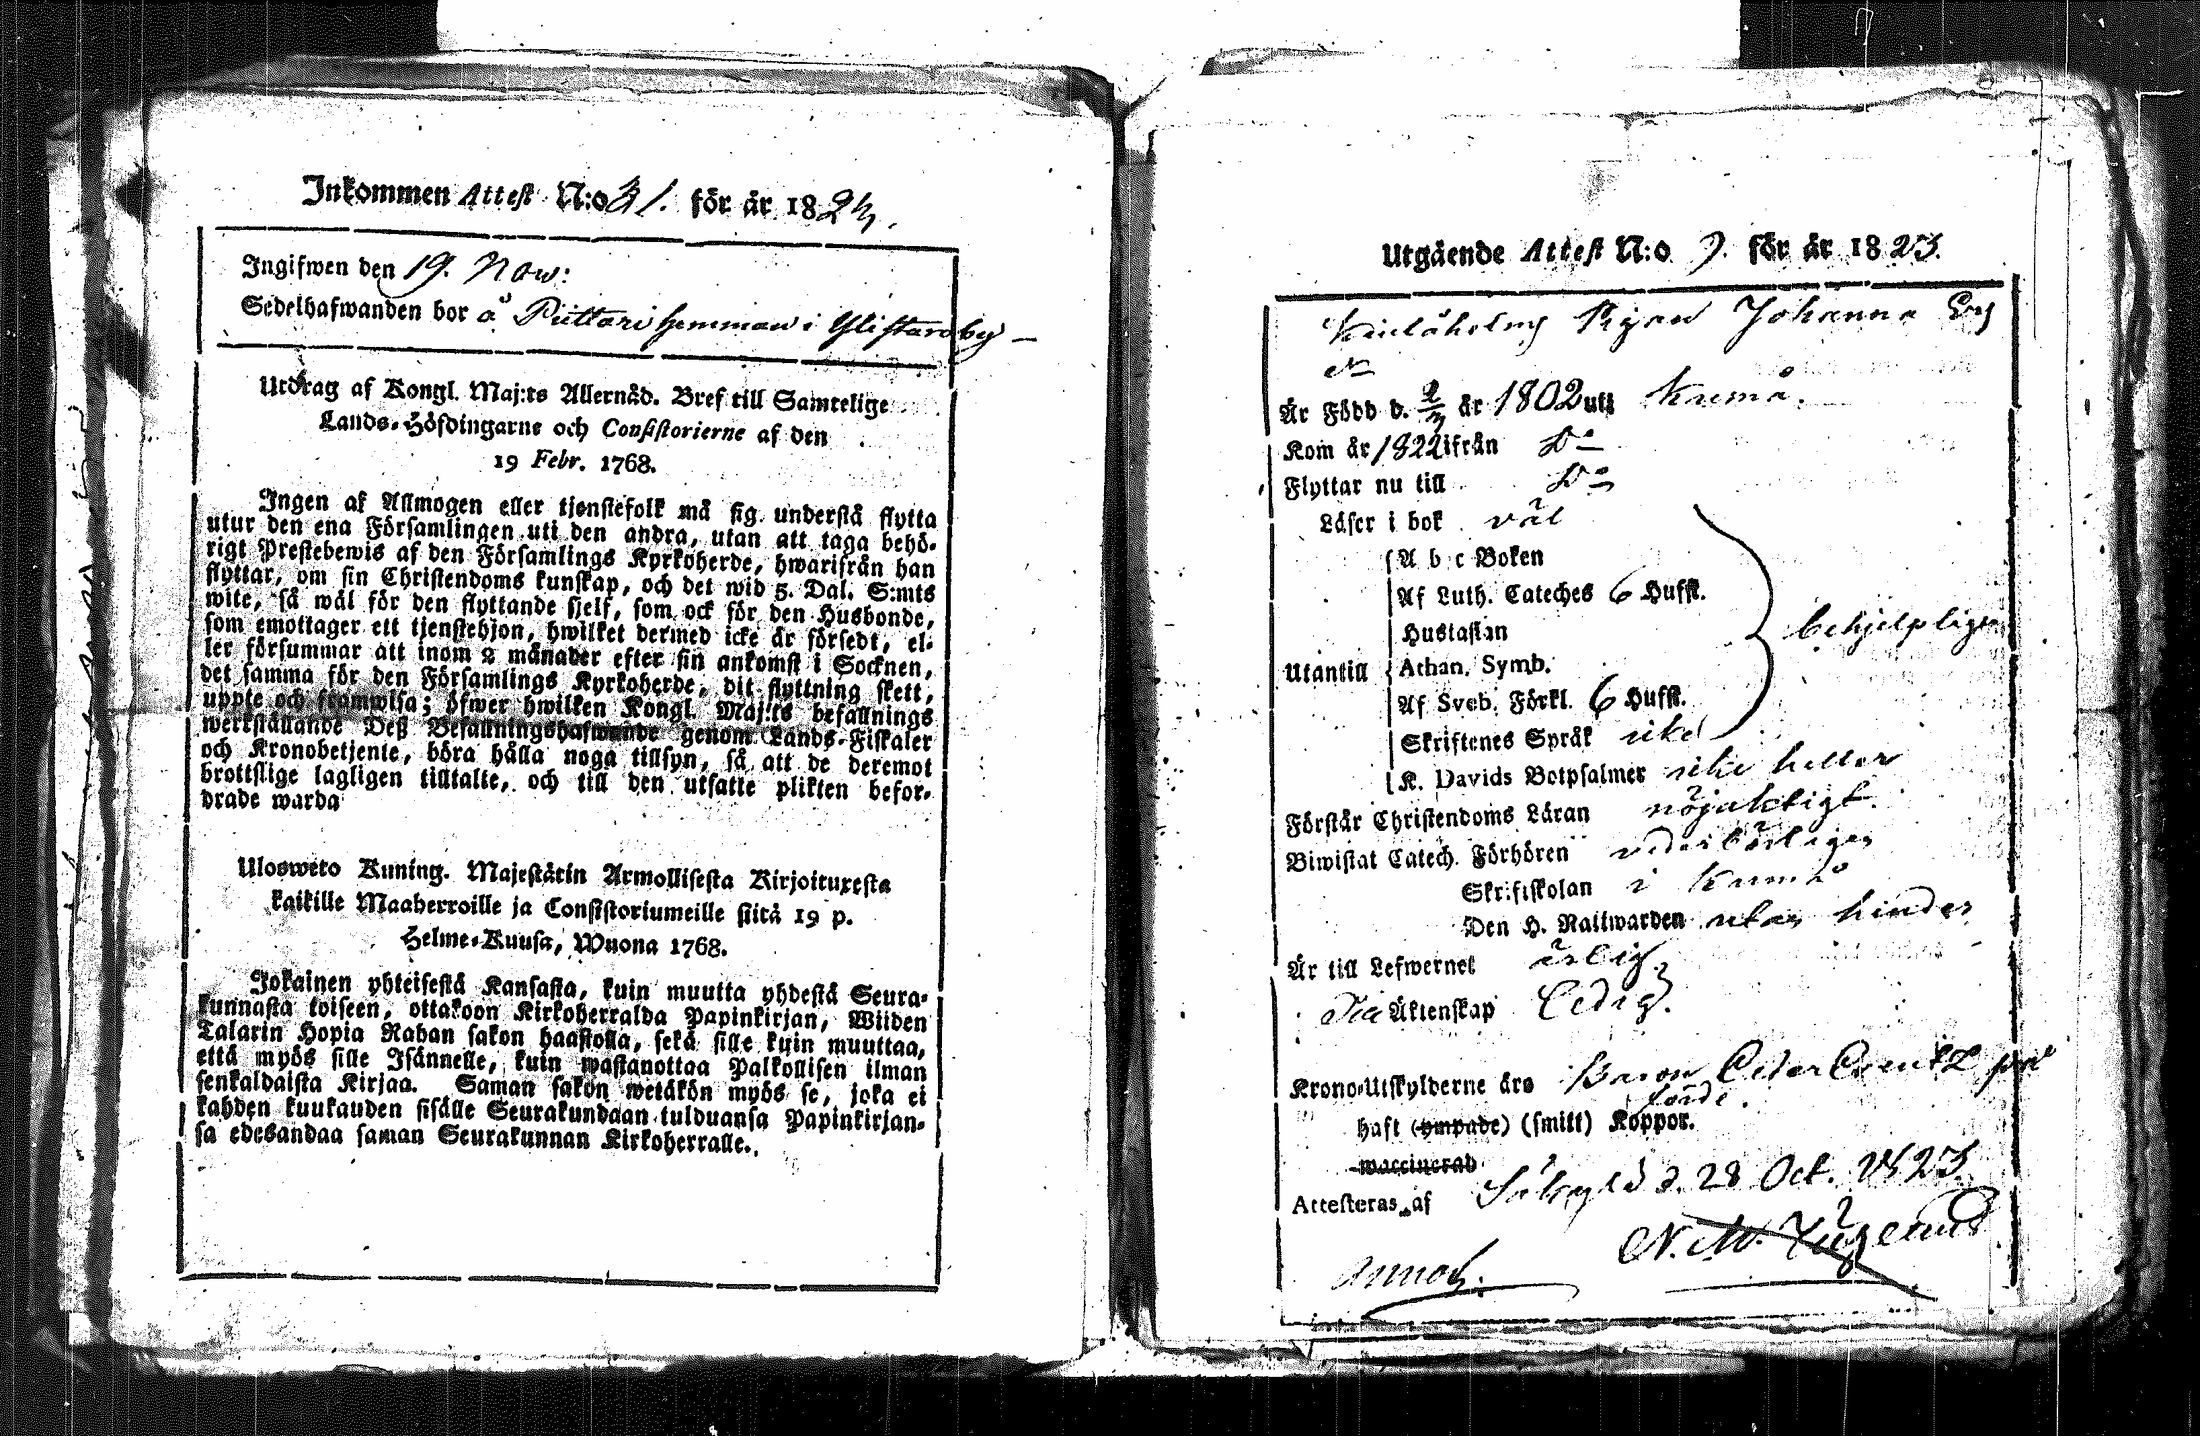 Inkommen Attest N:o 31. för år 1823.
Ingifwen den 19. Nov:
Sedelhafwanden bor å Puttari hemman i Ylistaro by
Utdrag af Kongl. Maj:ts Allernåd. Bref till Samtelige
Lands-Höfdingarne och Consistorierne af den
19 Febr. 1768.
Ingen af Allmogen eller tjenstefolk må sig understå flytta
utur den ena Församlingen uti den andra, utan att taga behö-
rigt Prestebewis af den Församlings Kyrkoherde, hwarifrån han
flyttar, om sin Christendoms kunskap, och det wid 5. Dal. S:mts
wite, så wäl för den flyttande sjelf, som ock för den Husbonde,
som emottager ett tjenstehjon, hwilket dermed icke är försedt, el-
ler försummar att inom 2 månader efter sin ankomst i Socknen,
det samma för den Församlings Kyrkoherde, dit flyttning skett,
uppte och framwisa; öfwer hwilken Kongl. Maj:ts befallnings
werkställande Deß Befallningshafwande genom Lands-Fiskaler
och Kronobetjente, böra hålla noga tillsyn, så att de deremot
brottslige lagligen tilltalte, och till den utsatte plikten befor-
drade warda
Ulosweto Kuning. Majestätin Armollisesta Kirjoituxesta
kaikille Maaherroille ja Consistoriumeille siitä 19 p.
Helme-Kuusa, Wuona 1768.
Jokainen yhteisestä Kansasta, kuin muutta yhdestä Seura-
kunnasta toiseen, ottakoon Kirkoherralda Papinkirjan, Wiiden
Talarin Hopia Rahan sakon haastolla, sekä sille kuin muuttaa,
että myös sille Isännelle, kuin wastanottaa Palkollisen ilman
senkaldaista Kirjaa. Saman sakon wetäkön myös se, joka ei
kahden kuukauden sisälle Seurakundaan tulduansa Papinkirjan-
sa edesandaa saman Seurakunnan Kirkoherralle.
Utgående Attest N:o 9. för år 1823.
Pigan Johanna
Är Född d. 2/7 år 1802 uti Kumo.
Kom år 1822 ifrån D:o
Flyttar nu till D:o
Läser i bok väl
Utantill
A b c Boken
Af Luth. Cateches 6 Hufst.
Hustaflan
Athan. Symb.
Af Sveb. Förkl. 6 Hufst.
behjelpligen
Skriftenes Språk icke
K. Davids Botpsalmer icke heller
Förstår Christendoms Läran nöjaktigt.
Biwistat Catech. Förhören vederbörligen
Skriftskolan i Kumo
Den H. Nattwarden utan hinder
Är till Lefwernet ärlig
Till Äktenskap Ledig.
Krono-Utskylderne äro Baron CederCreutz på
förde.
haft (ympade) (smitt) Koppor.
waccinerad
Attesteras af Säkylä d. 28 Oct. 1823.
N. M.
annot.